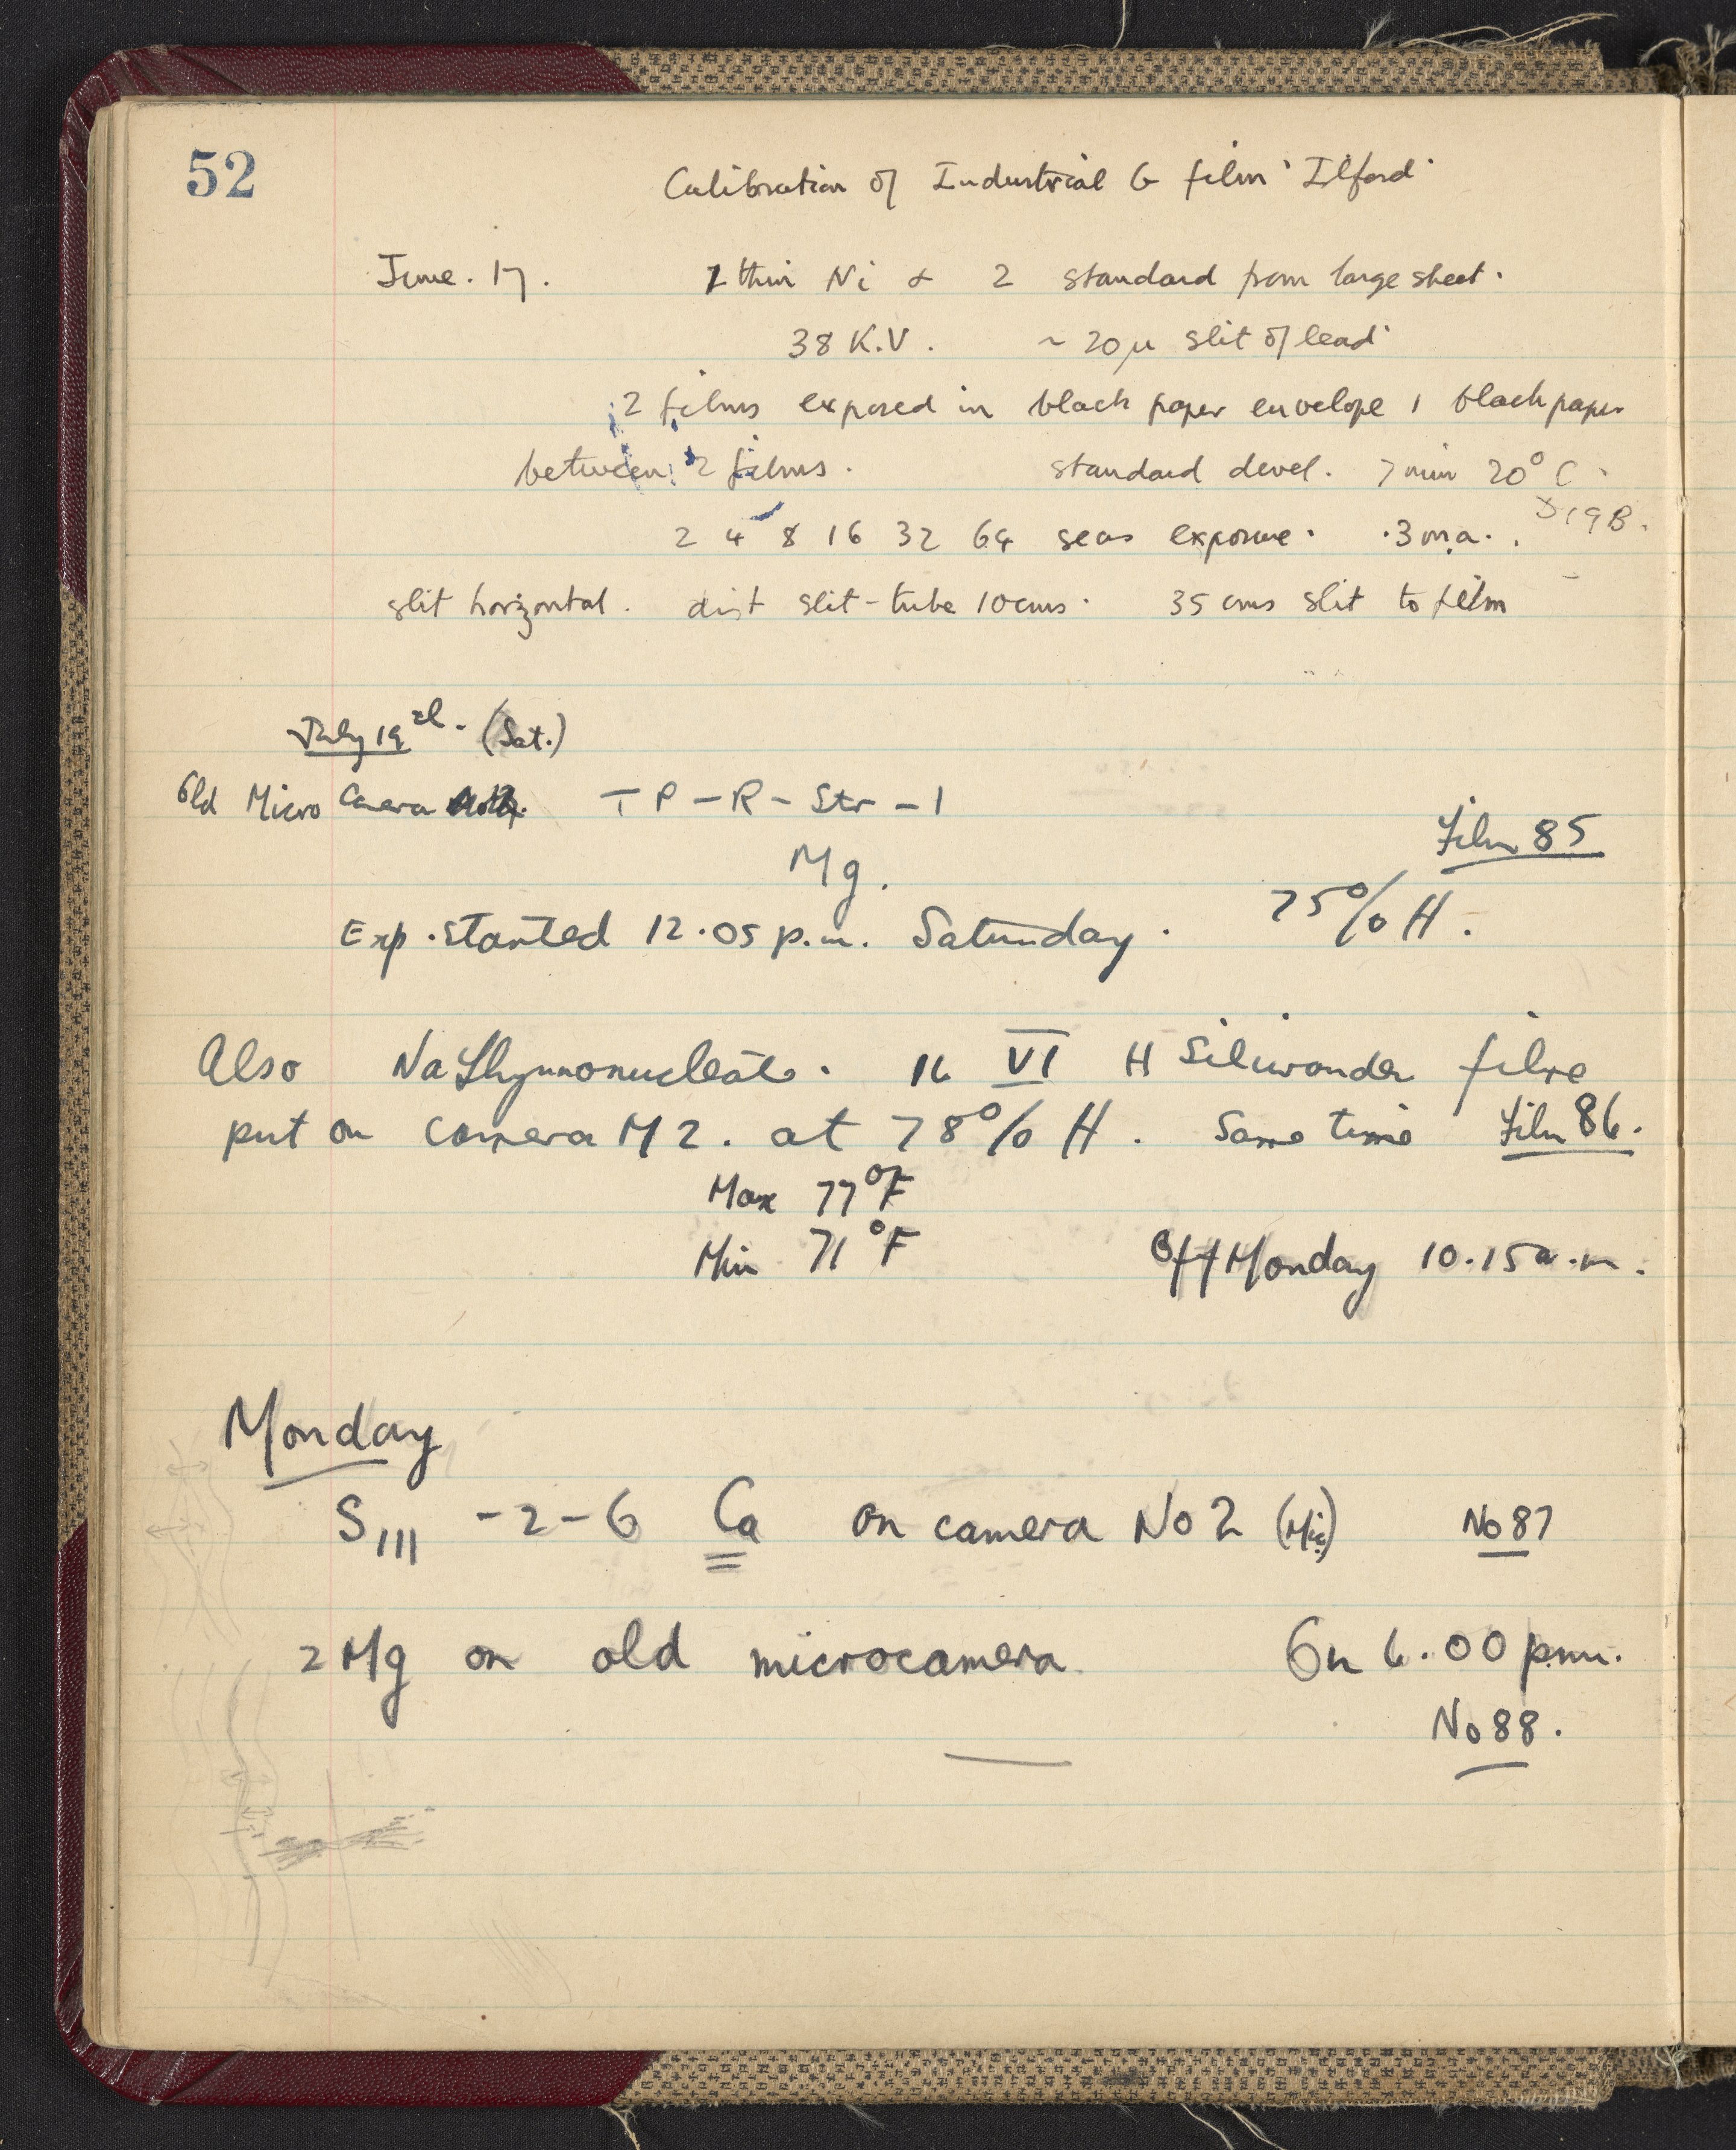 52
Calibration of Industrial G film 'Ilford'
June. 17. 1 thin Ni & 2 standard from large sheet.
38 K.V. ~ 20μ slit of lead
2 films exposed in black paper envelope 1 black paper
between 2 films. standard devel. 7 min 20° C.
D19B.
2 4 8 16 32 64 secs exposure. .3 m.a.
slit horizontal. dist slit-tube 10cms. 35 cms slit to film
July 19 (Sat.)
Old Micro Camera TP-R-Str-1
Film 85
Mg.
75% H.
Exp. started 12.05 p.m. Saturday.
Also Na Thymonucleate. VI H fibre
put on camera M2. at 78% H. Same time Film 86.
Max 77°F
Min 71°F Off Monday 10.15 a.m.
Monday
S III -2-6 Ca on camera No 2 (Mic) No 87
2 Mg on old microcamera On 6.00 p.m.
No 88.